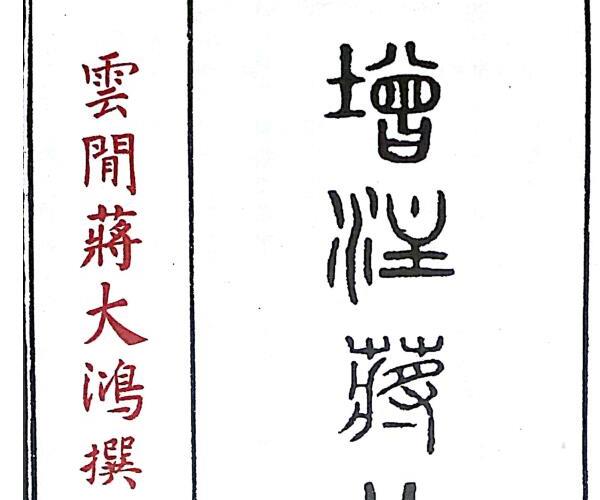 增注蔣
雲間蔣大鴻撰